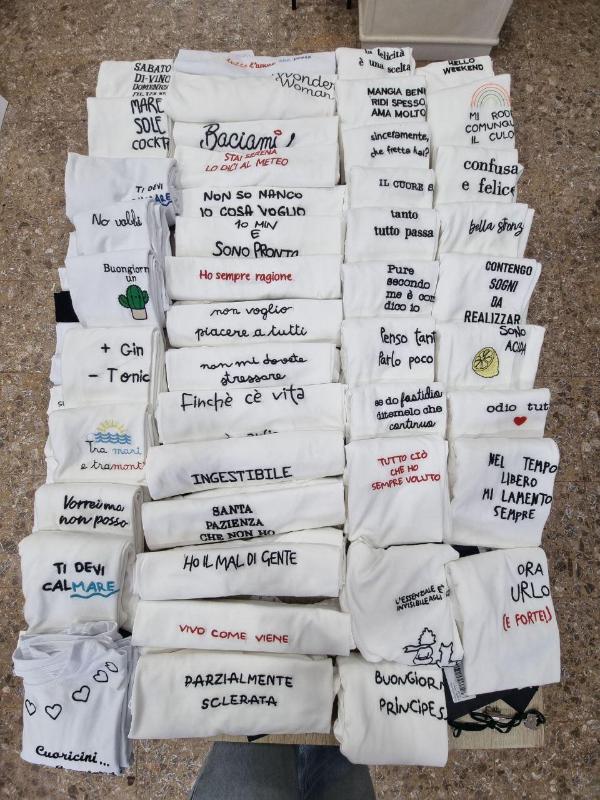 SABATO
DI-VINO
DOMENICA
MARE
SOLE
TI DEVI
No
Buongiorn
un
+ Gin
- Tonic
Tra mari
e tramont
Vorrei ma
non posso
TI DEVI
CALMARE
Cuoricini...
Wonder
Woman
Baciami!
STAI SERENA
LO DICI AL METEO
NON SO MANCO
IO COSA VOGLIO
10 MIN
E
SONO PRONTA
Ho sempre ragione
non voglio
piacere a tutti
non mi dovete
stressare
Finchè c'è vita
INGESTIBILE
SANTA
PAZIENZA
CHE NON HO
HO IL MAL DI GENTE
VIVO COME VIENE
PARZIALMENTE
SCLERATA
la felicità
è una scelta
MANGIA BENE
RIDI SPESSO
AMA MOLTO
sinceramente,
che fretta hai?
IL CUORE
tanto
tutto passa
Pure
secondo
me è com
dico io
Penso tant
Parlo poco
se do fastidio
ditemelo che
continuo
TUTTO CIÒ
CHE HO
SEMPRE VOLUTO
L'ESSENZIALE È
INVISIBILE AGLI
BUONGIORN
PRINCIPES
HELLO
WEEKEND
MI ROD
COMUNQU
IL CULO
confusa
e felice
bella stronz
CONTENGO
SOGNI
DA
REALIZZAR
SONO
ACIDA
odio tut
NEL TEMPO
LIBERO
MI LAMENTO
SEMPRE
ORA
URLO
(E FORTE!)